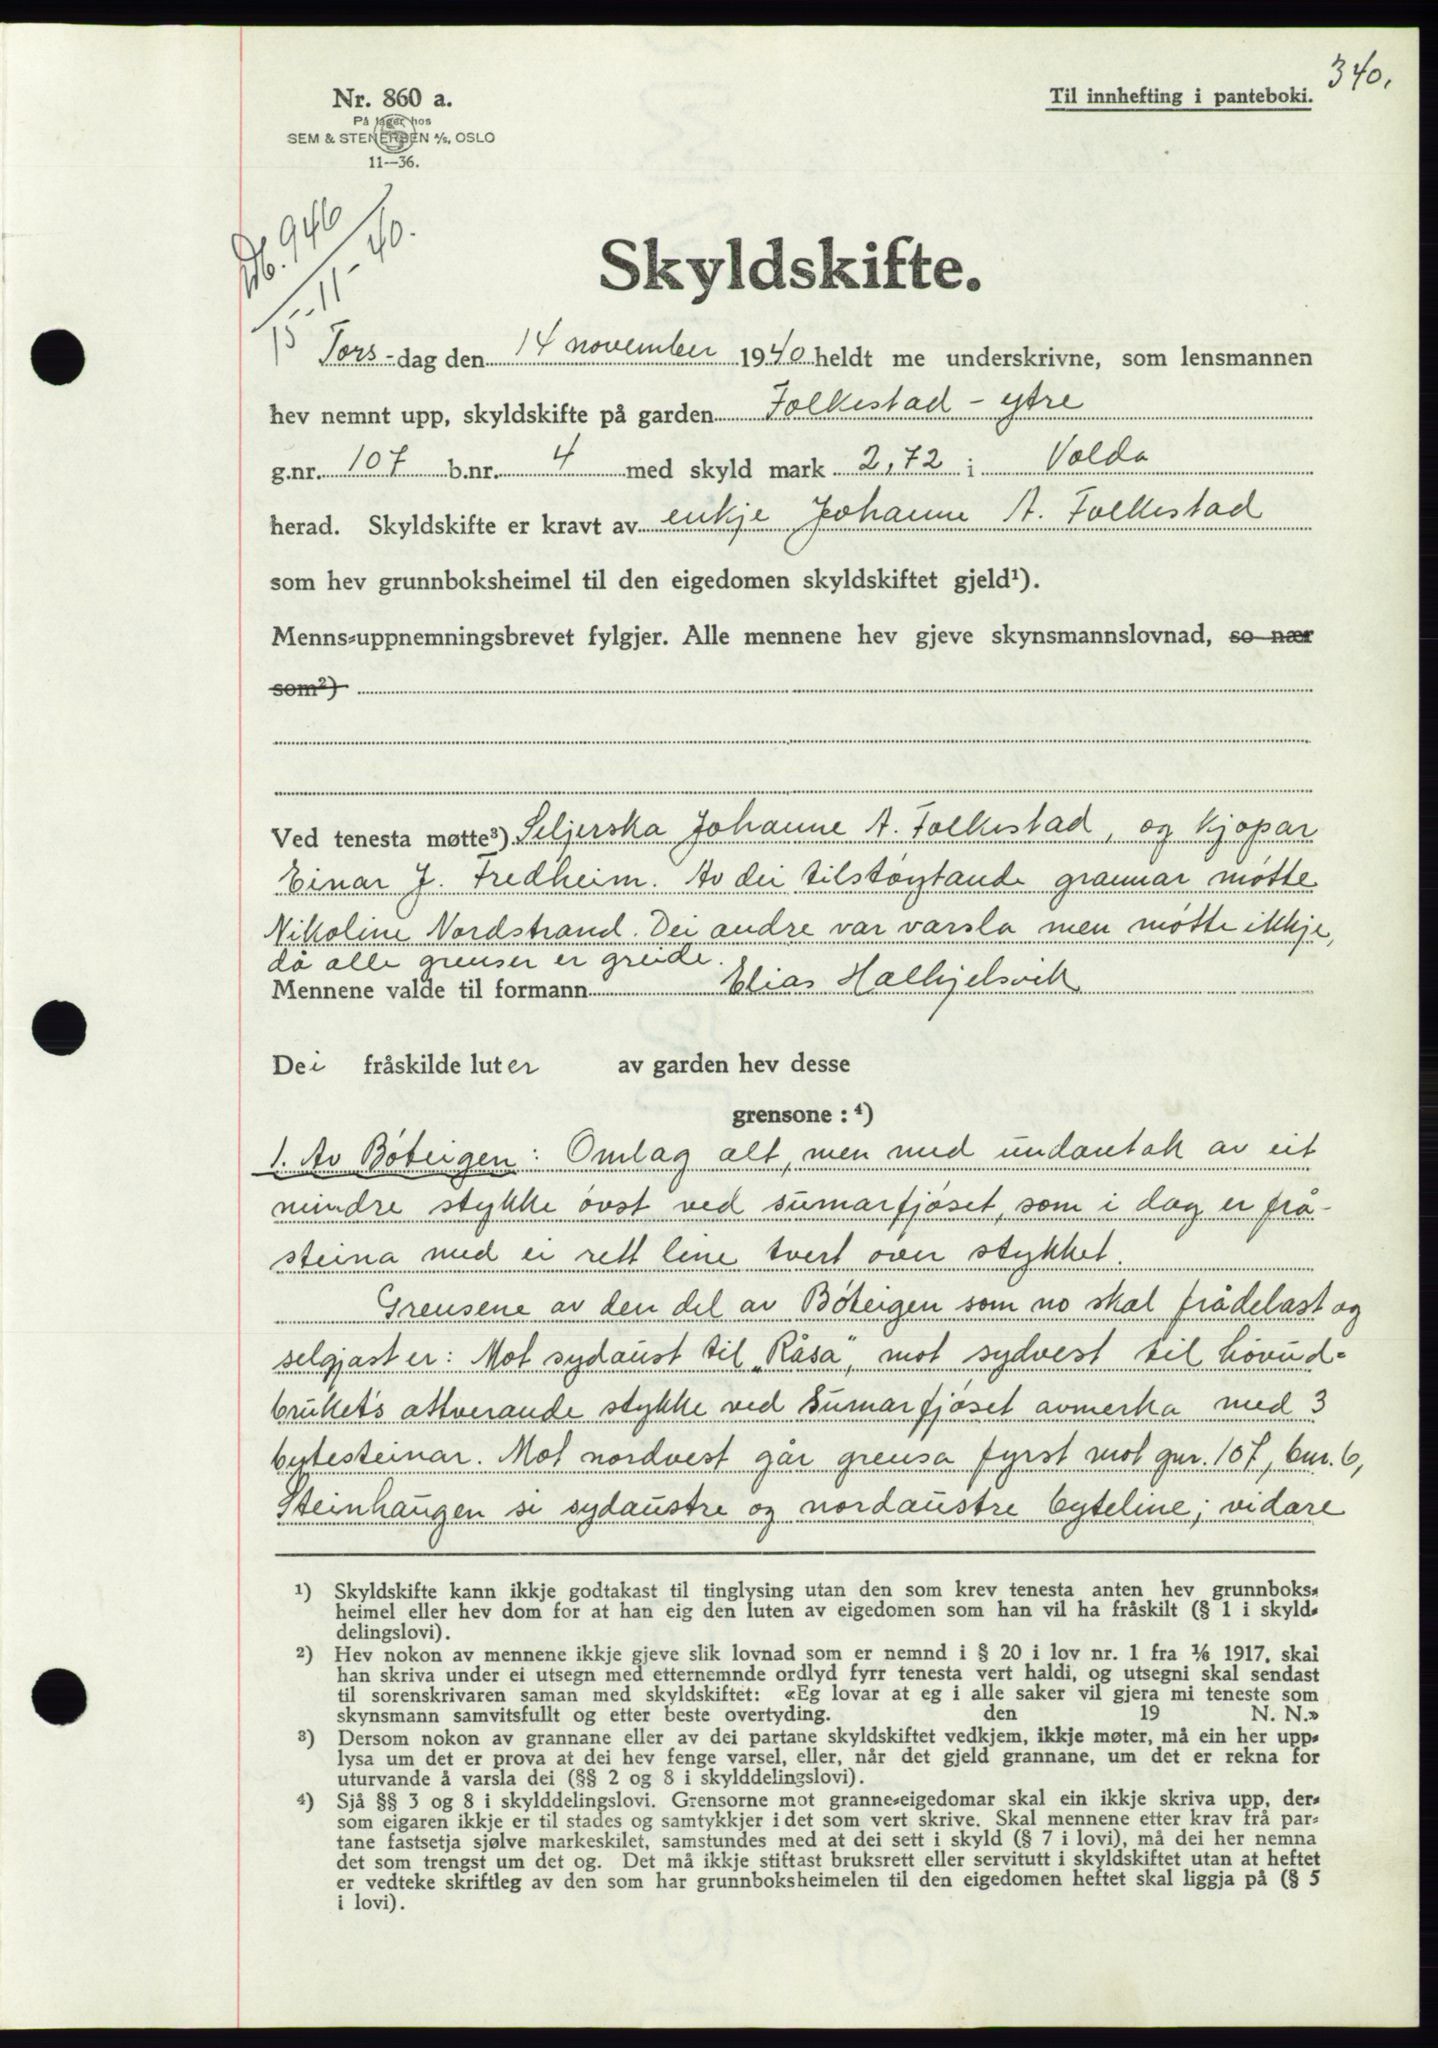 340.
Nr. 860 a.
På lager hos
SEM & STENERSEN A/S, OSLO
11—36.
Til innhefting i panteboki.
Db. 946
15-11-40.
Skyldskifte.
Tors-dag den 14 november 1940 heldt me underskrivne, som lensmannen
hev nemnt upp, skyldskifte på garden Folkestad - ytre
g.nr. 107 b.nr. 4 med skyld mark 2,72 i Volda
herad. Skyldskifte er kravt av enkje Johanne A. Folkestad
som hev grunnboksheimel til den eigedomen skyldskiftet gjeld¹).
Menns-uppnemningsbrevet fylgjer. Alle mennene hev gjeve skynsmannslovnad, so nær
som²)
Ved tenesta møtte³) Seljerska Johanne A. Folkestad, og kjøpar
Einar J. Fredheim. Av dei tilstøytande grannar møtte
Nikoline Nordstrand. Dei andre var varsla men møtte ikkje,
då alle grenser er greide.
Mennene valde til formann Elias Halkjelsvik
Dei fråskilde luter av garden hev desse
grensone : ⁴)
1. Av Bøteigen: Omlag alt, men med undantak av eit
mindre stykke øvst ved sumarfjøset, som i dag er frå-
steina med ei rett line tvert over stykket.
Grensene av den del av Bøteigen som no skal frådelast og
selgjast er: Mot sydaust til „Råsa", mot sydvest til hovud-
brukets attverande stykke ved Sumarfjøset avmerka med 3
bytesteinar. Mot nordvest går grensa fyrst mot gnr. 107, bnr. 6,
Steinhaugen si sydaustre og nordaustre byteline; vidare
¹) Skyldskifte kann ikkje godtakast til tinglysing utan den som krev tenesta anten hev grunnboks-
heimel eller hev dom for at han eig den luten av eigedomen som han vil ha fråskilt (§ 1 i skyld-
delingslovi).
²) Hev nokon av mennene ikkje gjeve slik lovnad som er nemnd i § 20 i lov nr. 1 fra 1/6 1917, skal
han skriva under ei utsegn med etternemnde ordlyd fyrr tenesta vert haldi, og utsegni skal sendast
til sorenskrivaren saman med skyldskiftet: «Eg lovar at eg i alle saker vil gjera mi teneste som
skynsmann samvitsfullt og etter beste overtyding. den 19 N. N.»
³) Dersom nokon av grannane eller av dei partane skyldskiftet vedkjem, ikkje møter, må ein her upp-
lysa um det er prova at dei hev fenge varsel, eller, når det gjeld grannane, um det er rekna for
uturvande å varsla dei (§§ 2 og 8 i skylddelingslovi).
⁴) Sjå §§ 3 og 8 i skylddelingslovi. Grensorne mot granne-eigedomar skal ein ikkje skriva upp, der-
som eigaren ikkje er til stades og samtykkjer i det som vert skrive. Skal mennene etter krav frå par-
tane fastsetja sjølve markeskilet, samstundes med at dei sett i skyld (§ 7 i lovi), må dei her nemna
det som trengst um det og. Det må ikkje stiftast bruksrett eller servitutt i skyldskiftet utan at heftet
er vedteke skriftleg av den som har grunnboksheimelen til den eigedomen heftet skal liggja på (§ 5
i lovi).